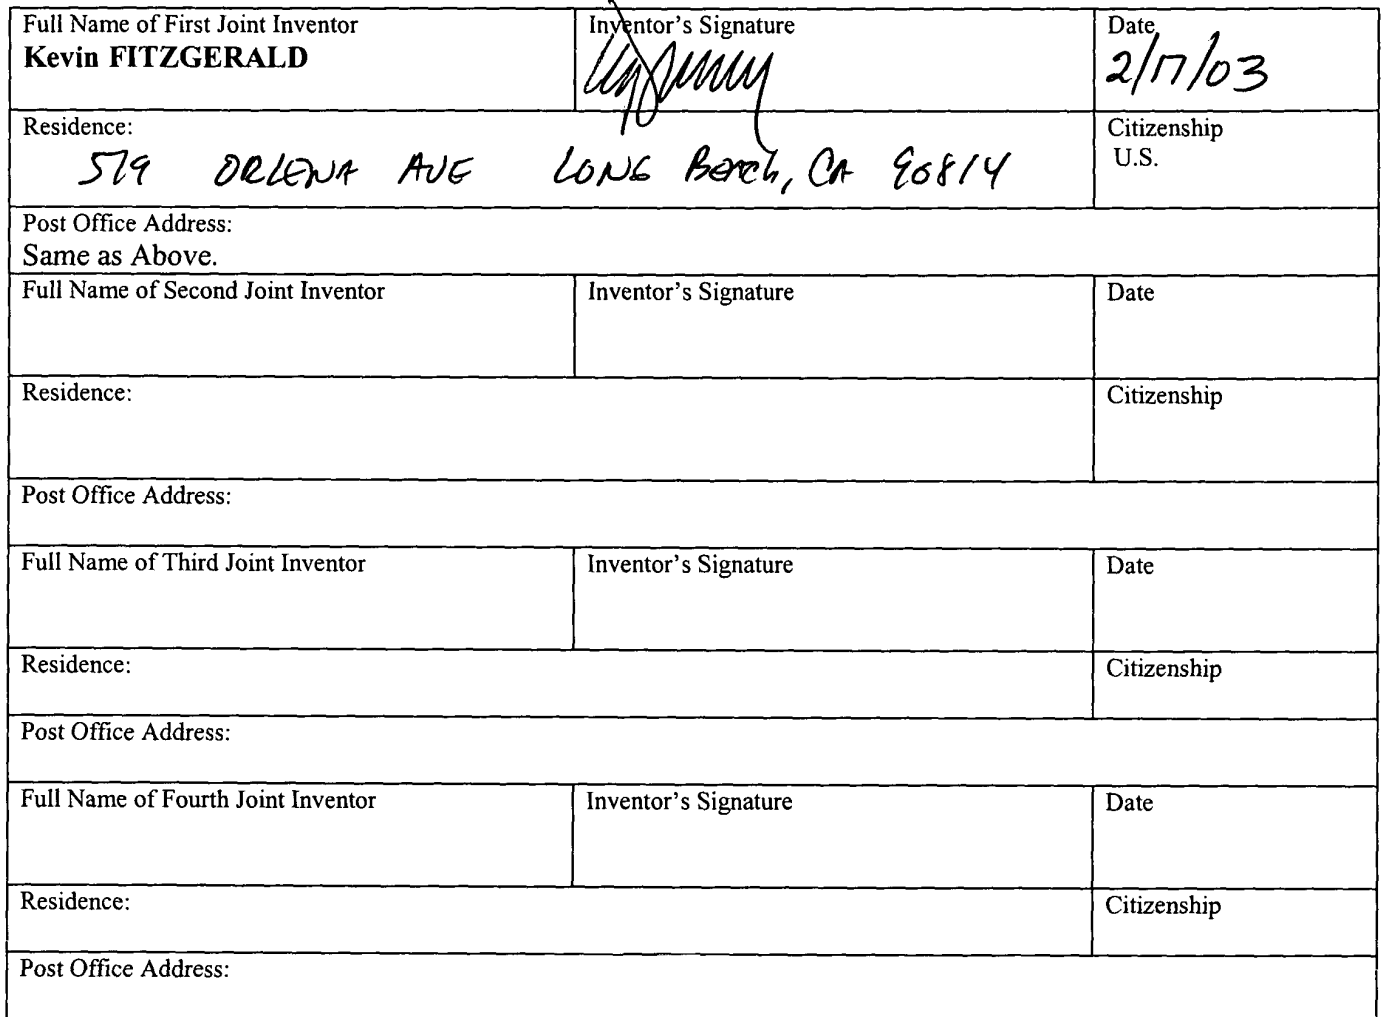 Full Name of First Joint Inventor
Kevin FITZGERALD
Inventor's Signature
Date
2/17/03
Residence:
519 ORLENA AVE LONG Beach, CA 90814
Citizenship
U.S.
Post Office Address:
Same as Above.
Full Name of Second Joint Inventor
Inventor's Signature
Date
Residence:
Citizenship
Post Office Address:
Full Name of Third Joint Inventor
Inventor's Signature
Date
Residence:
Citizenship
Post Office Address:
Full Name of Fourth Joint Inventor
Inventor's Signature
Date
Residence:
Citizenship
Post Office Address: